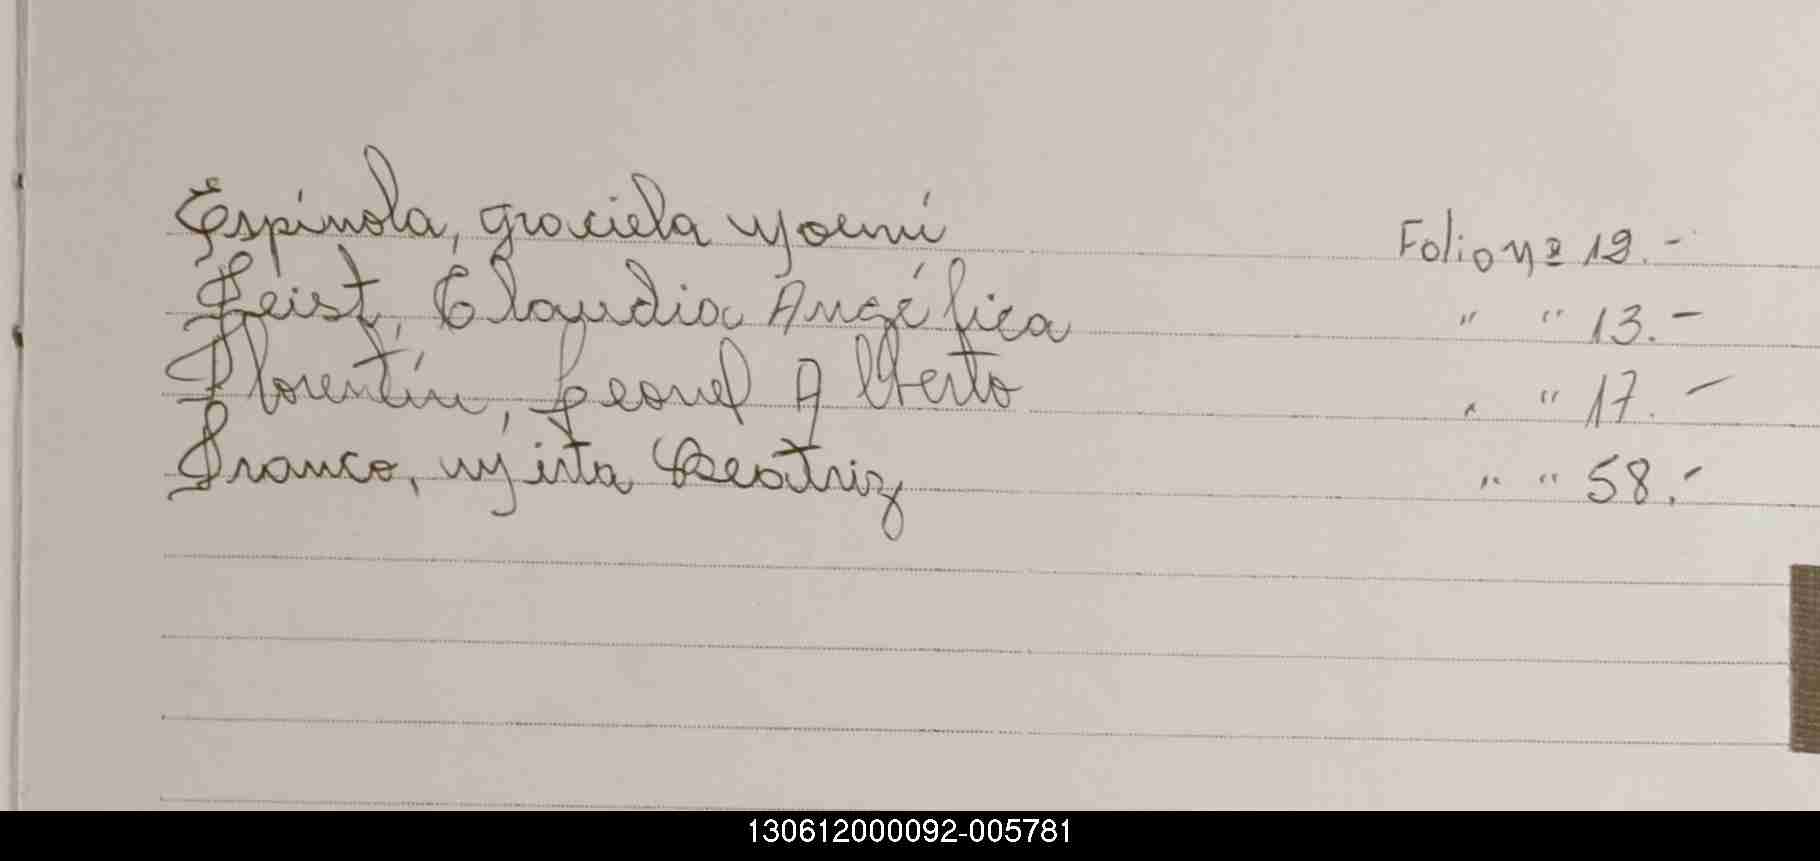 Espínola, Graciela Noemí Folio Nº 19.-
Feist, Claudia Angélica " " 13.-
Florentín, Leonel Alberto " " 17.-
Franco, Mirta Beatriz " " 58.-
130612000092-005781